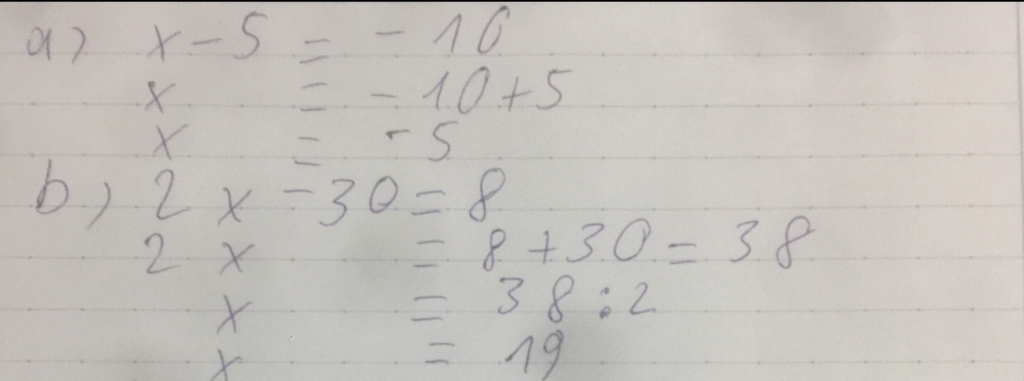 a) x - 5 = - 10
x = - 10 + 5
x = - 5
b) 2 x - 30 = 8
2 x = 8 + 30 = 38
x = 38 : 2
x = 19